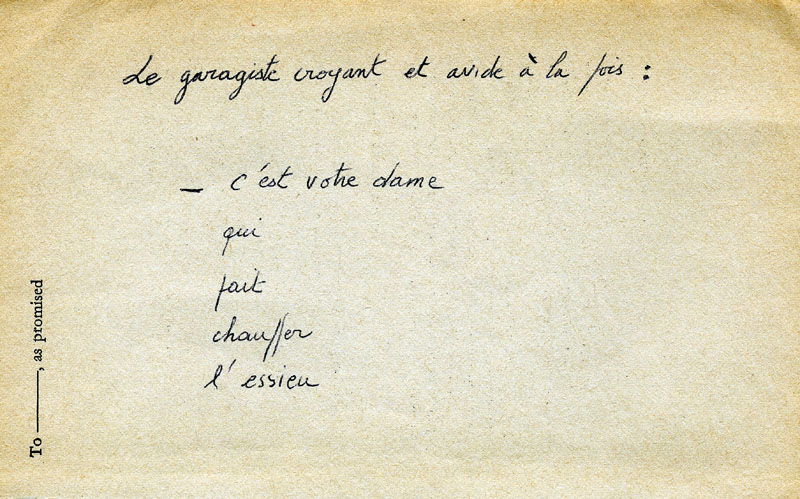 Le garagiste croyant et avide à la fois :
— c'est votre dame
qui
fait
chauffer
l'essieu
To ———, as promised